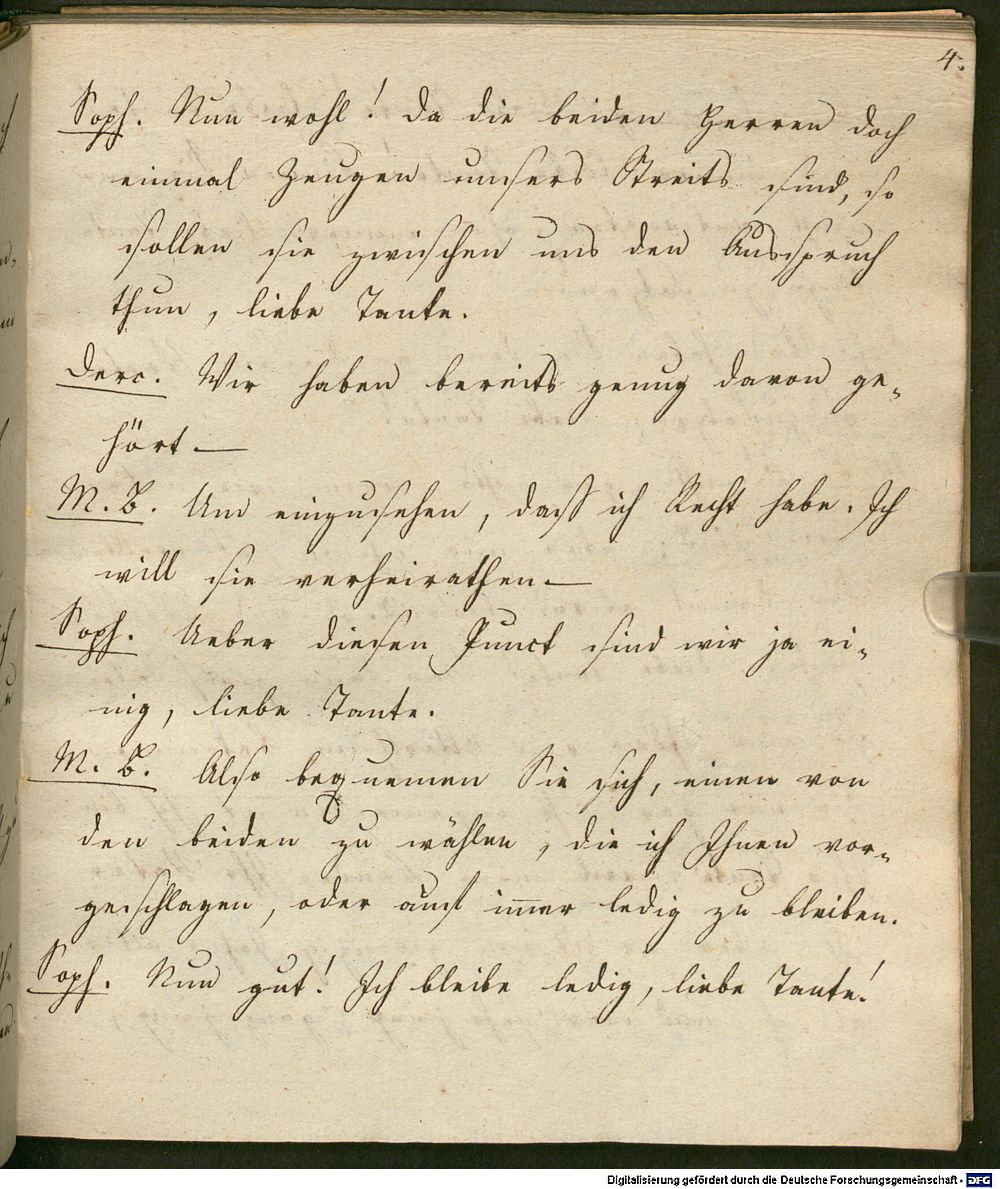 4.
Soph. Nun wohl! da die beiden Herren doch
einmal Zeugen unsers Streits sind, so
sollen sie zwischen uns den Ausspruch
thun, liebe Tante.
Derc. Wir haben bereits genug davon ge-
hört —
M. B. Um einzusehen, daß ich Recht habe. Ich
will sie verheirathen —
Soph. Ueber diesen Punct sind wir ja ei-
nig, liebe Tante.
M. B. Also bequemen Sie sich, einen von
den beiden zu wählen, die ich Ihnen vor-
geschlagen, oder auch im̅er ledig zu bleiben.
Soph. Nun gut! Ich bleibe ledig, liebe Tante!
Digitalisierung gefördert durch die Deutsche Forschungsgemeinschaft - DFG